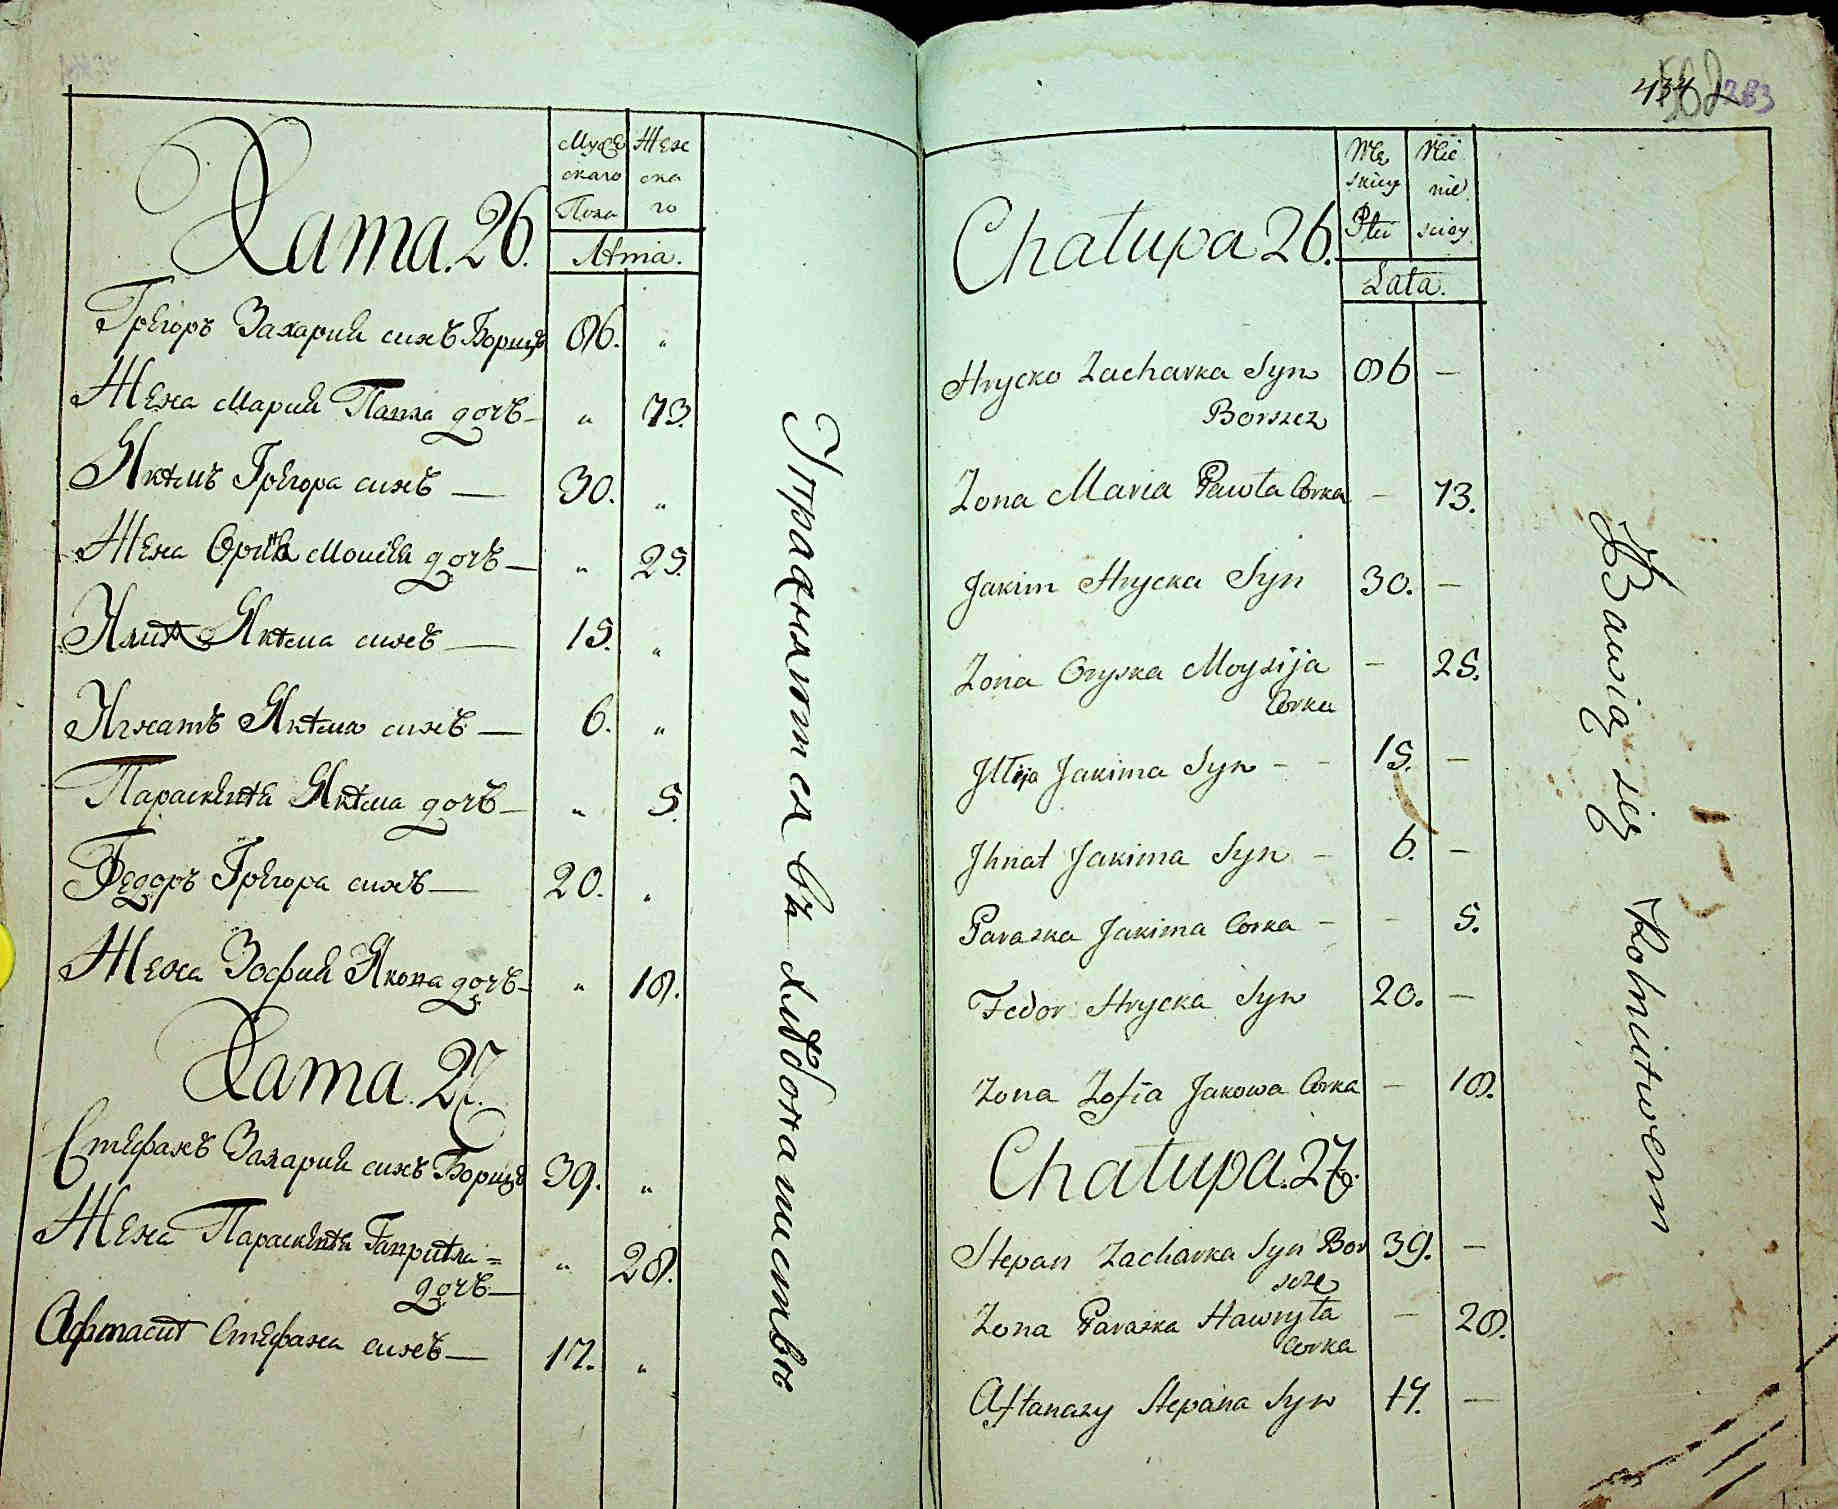 Мужескаго Пола
Женскаго
Лѣтa.
Хата. 26.
Грегоръ Захарий синъ Борщъ 86. "
Жена Марий Павла дочъ — " 73.
Якѣмъ Грегора синъ — 30. "
Жена Орина Моисѣя дочъ — " 25.
Якѣма синъ — 15. "
Игнатъ Якѣма синъ — 6. "
Параскевѣя Якѣма дочъ — " 5.
Федоръ Грегора синъ — 20. "
Жена Зофия Якова дочъ — " 18.
Хата. 27.
Стефанъ Захарий синъ Борщъ 39. "
Жена Параскевѣя Гаврила=
дочъ — " 28.
Стефана синъ — 17. "
Упражняются въ хлѣбопашествѣ
283
Męskiey Płci
Niewieściey
Lata.
Chałupa 26.
Hrycko Zacharka Syn 86 —
Borszcz
Zona Maria Pawła Corka — 73.
Jakim Hrycka Syn 30. —
Zona Oryska Moysija — 25.
Corka
Jllija Jakima Syn - - 15. —
Jhnat Jakima Syn - 6. —
Paraska Jakima Corka - - 5.
Fedor Hrycka Syn 20. —
Zona Zofia Jakowa Corka — 18.
Chałupa. 27.
Stepan Zacharka Syn Bor 39. —
szcz
Zona Paraska Hawryła — 28.
Corka
Aftanazy Stepana Syn 17. —
Bawią się Rolnictwem